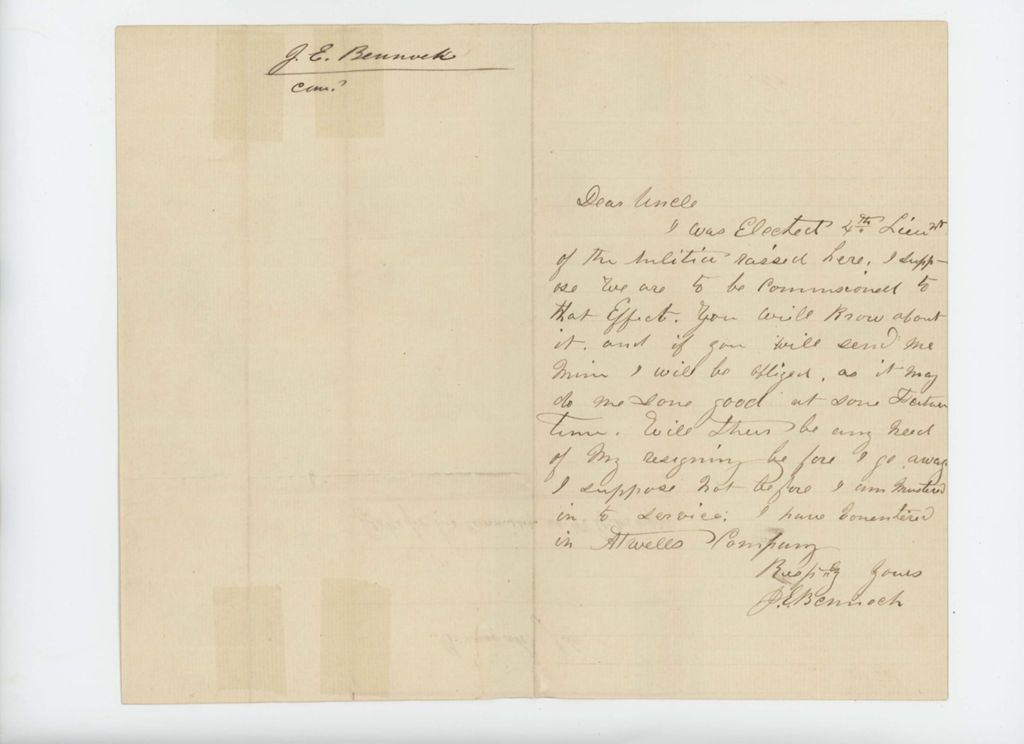 J. E. Bennock
Com.
Dear Uncle
I was Elected 4th Lieut
of the Militia raised here, I supp-
ose We are to be Commisioned to
that Effect. You will Know about
it. and if you will send me
Mine I will be obliged, as it may
do me some good at some Future
time. Will their be any need
of My resigning before I go away
I suppose not before I am Mustered
in to service; I have
in Atwells Company
Respty yours
J. E. Bennoch